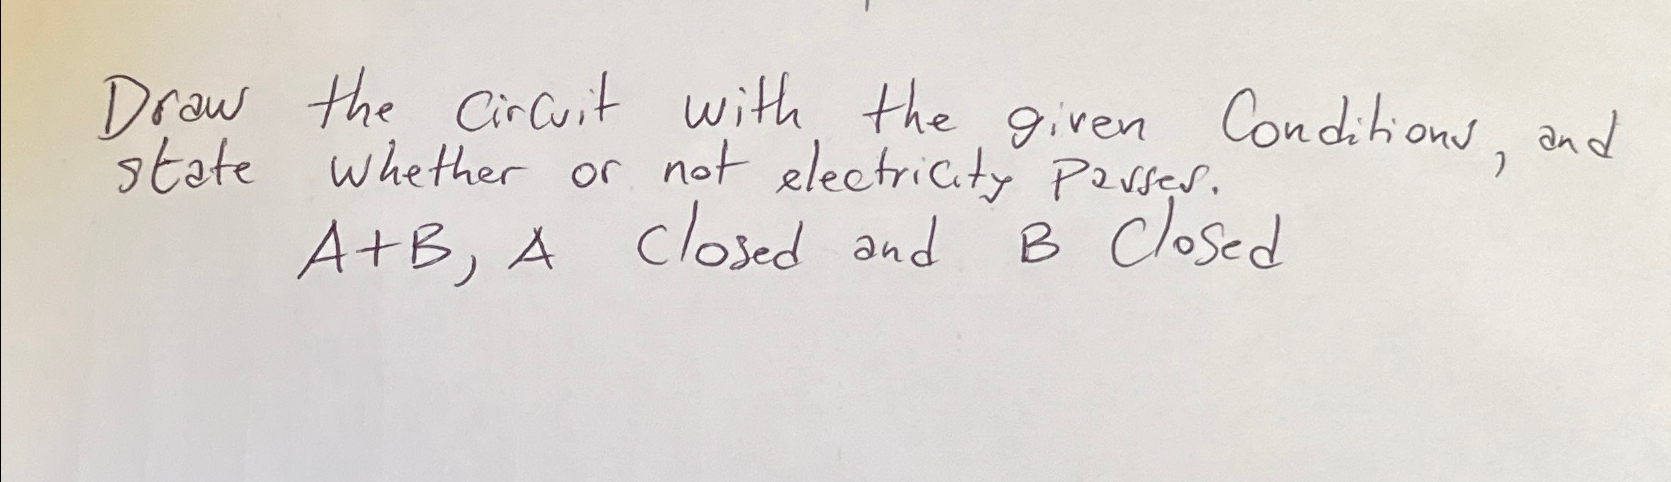 Draw the circuit with the given Conditions, and
state whether or not electricity passes.
A+B, A Closed and B Closed